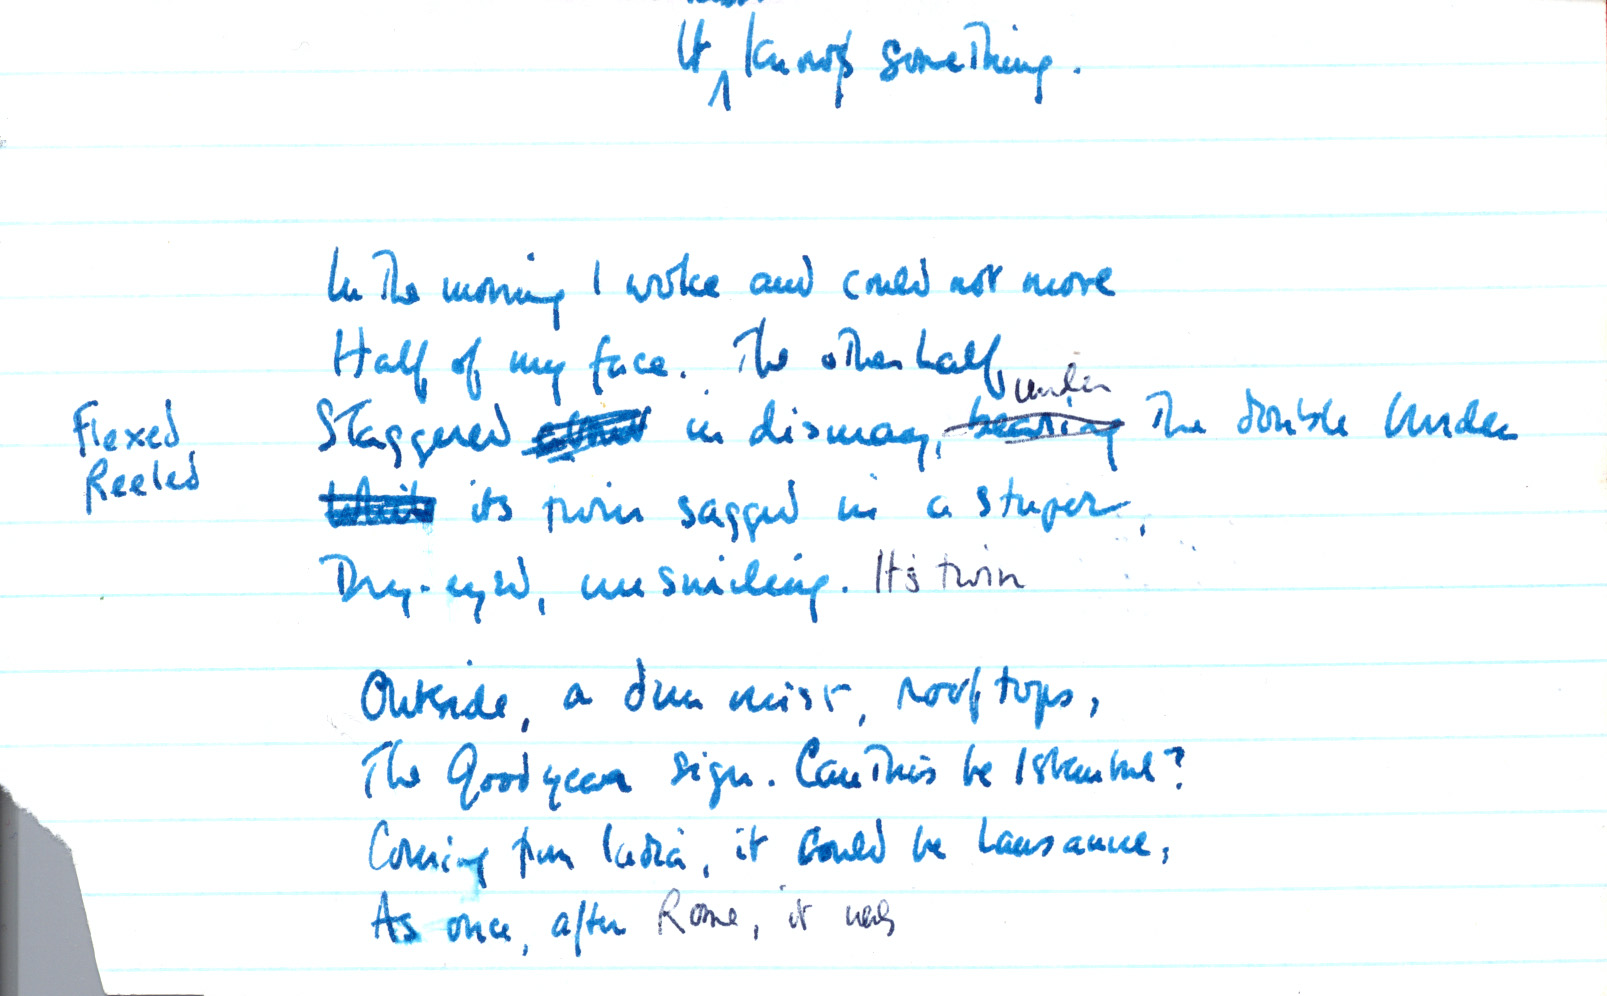 It knows something.
In the morning I woke and could not move
Half of my face. The other half,
under
Flexed
Staggered in dismay, bearing the double burden
Reeled
While its twin sagged in a stupor,
Dry-eyed, unsmiling. Its twin
Outside, a dun mist, rooftops,
The Goodyear sign. Can this be Istanbul?
Coming from India, it could be Lausanne,
As once, after Rome, it was